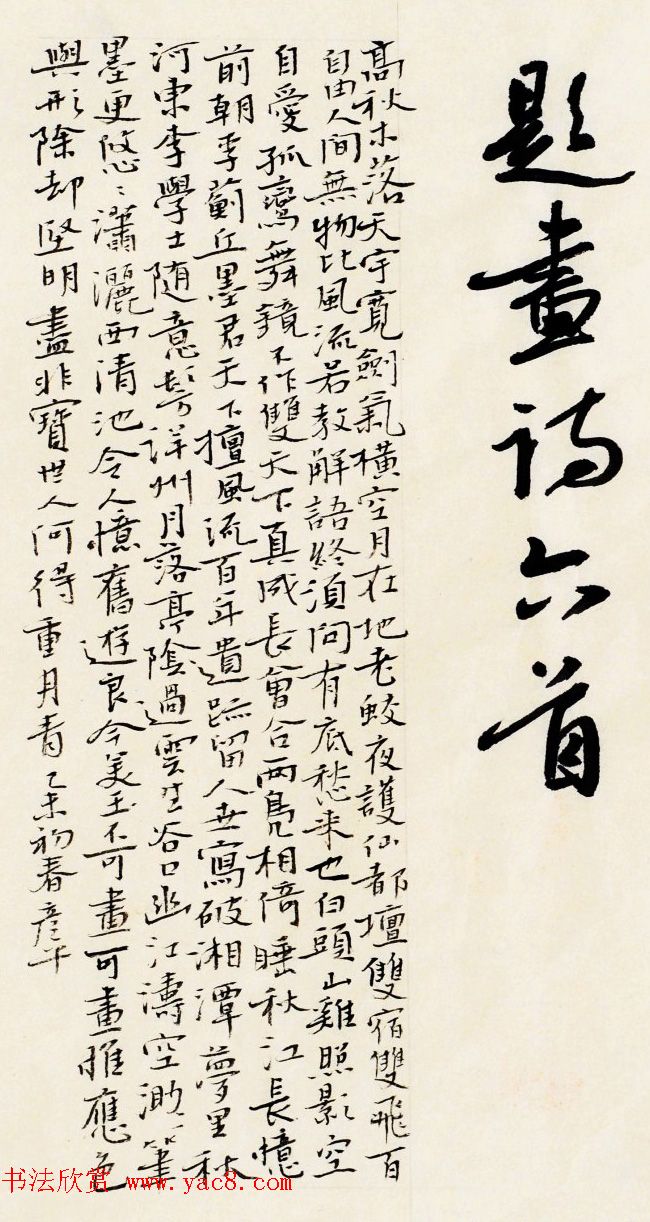 題畫詩六首
高秋木落天宇寬劍氣橫空月在地老蛟夜護仙都壇雙宿雙飛百
自由人間無物比風流若教解語終須問有底愁來也白頭山雞照影空
自愛孤鸞舞鏡不作雙天下真成長會合兩鳧相倚睡秋江長憶
前朝李薊丘墨君天下擅風流百年遺跡留人世寫破湘潭夢里秋
河東李學士随意 洋州月落亭陰過雲生谷口幽江濤空渺筆
墨更悠〻瀟灑西清池令人憶舊遊良金美玉不可畫可畫惟應色
與形除却堅明盡非寶世人何得重丹青乙未初春彦平
书法欣赏 www.yac8.com